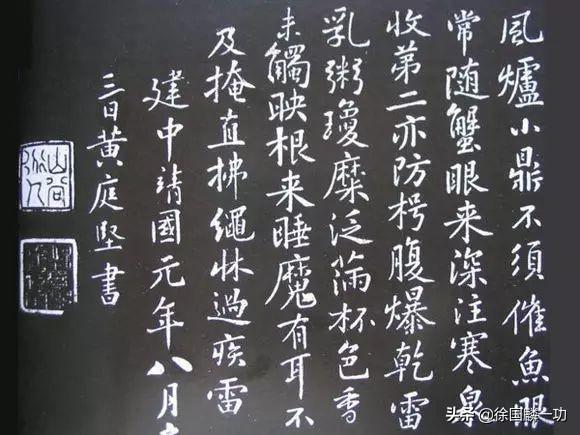 風爐小鼎不須催魚眼
常随蟹眼来深注寒泉
收第二亦防枵腹爆乾雷
乳粥瓊糜泛满杯色香
未觸映根来睡魔有耳不
及掩直拂繩牀過疾雷
建中靖國元年八月
三日黄庭堅書
山谷道人
头条 @徐国麟一功